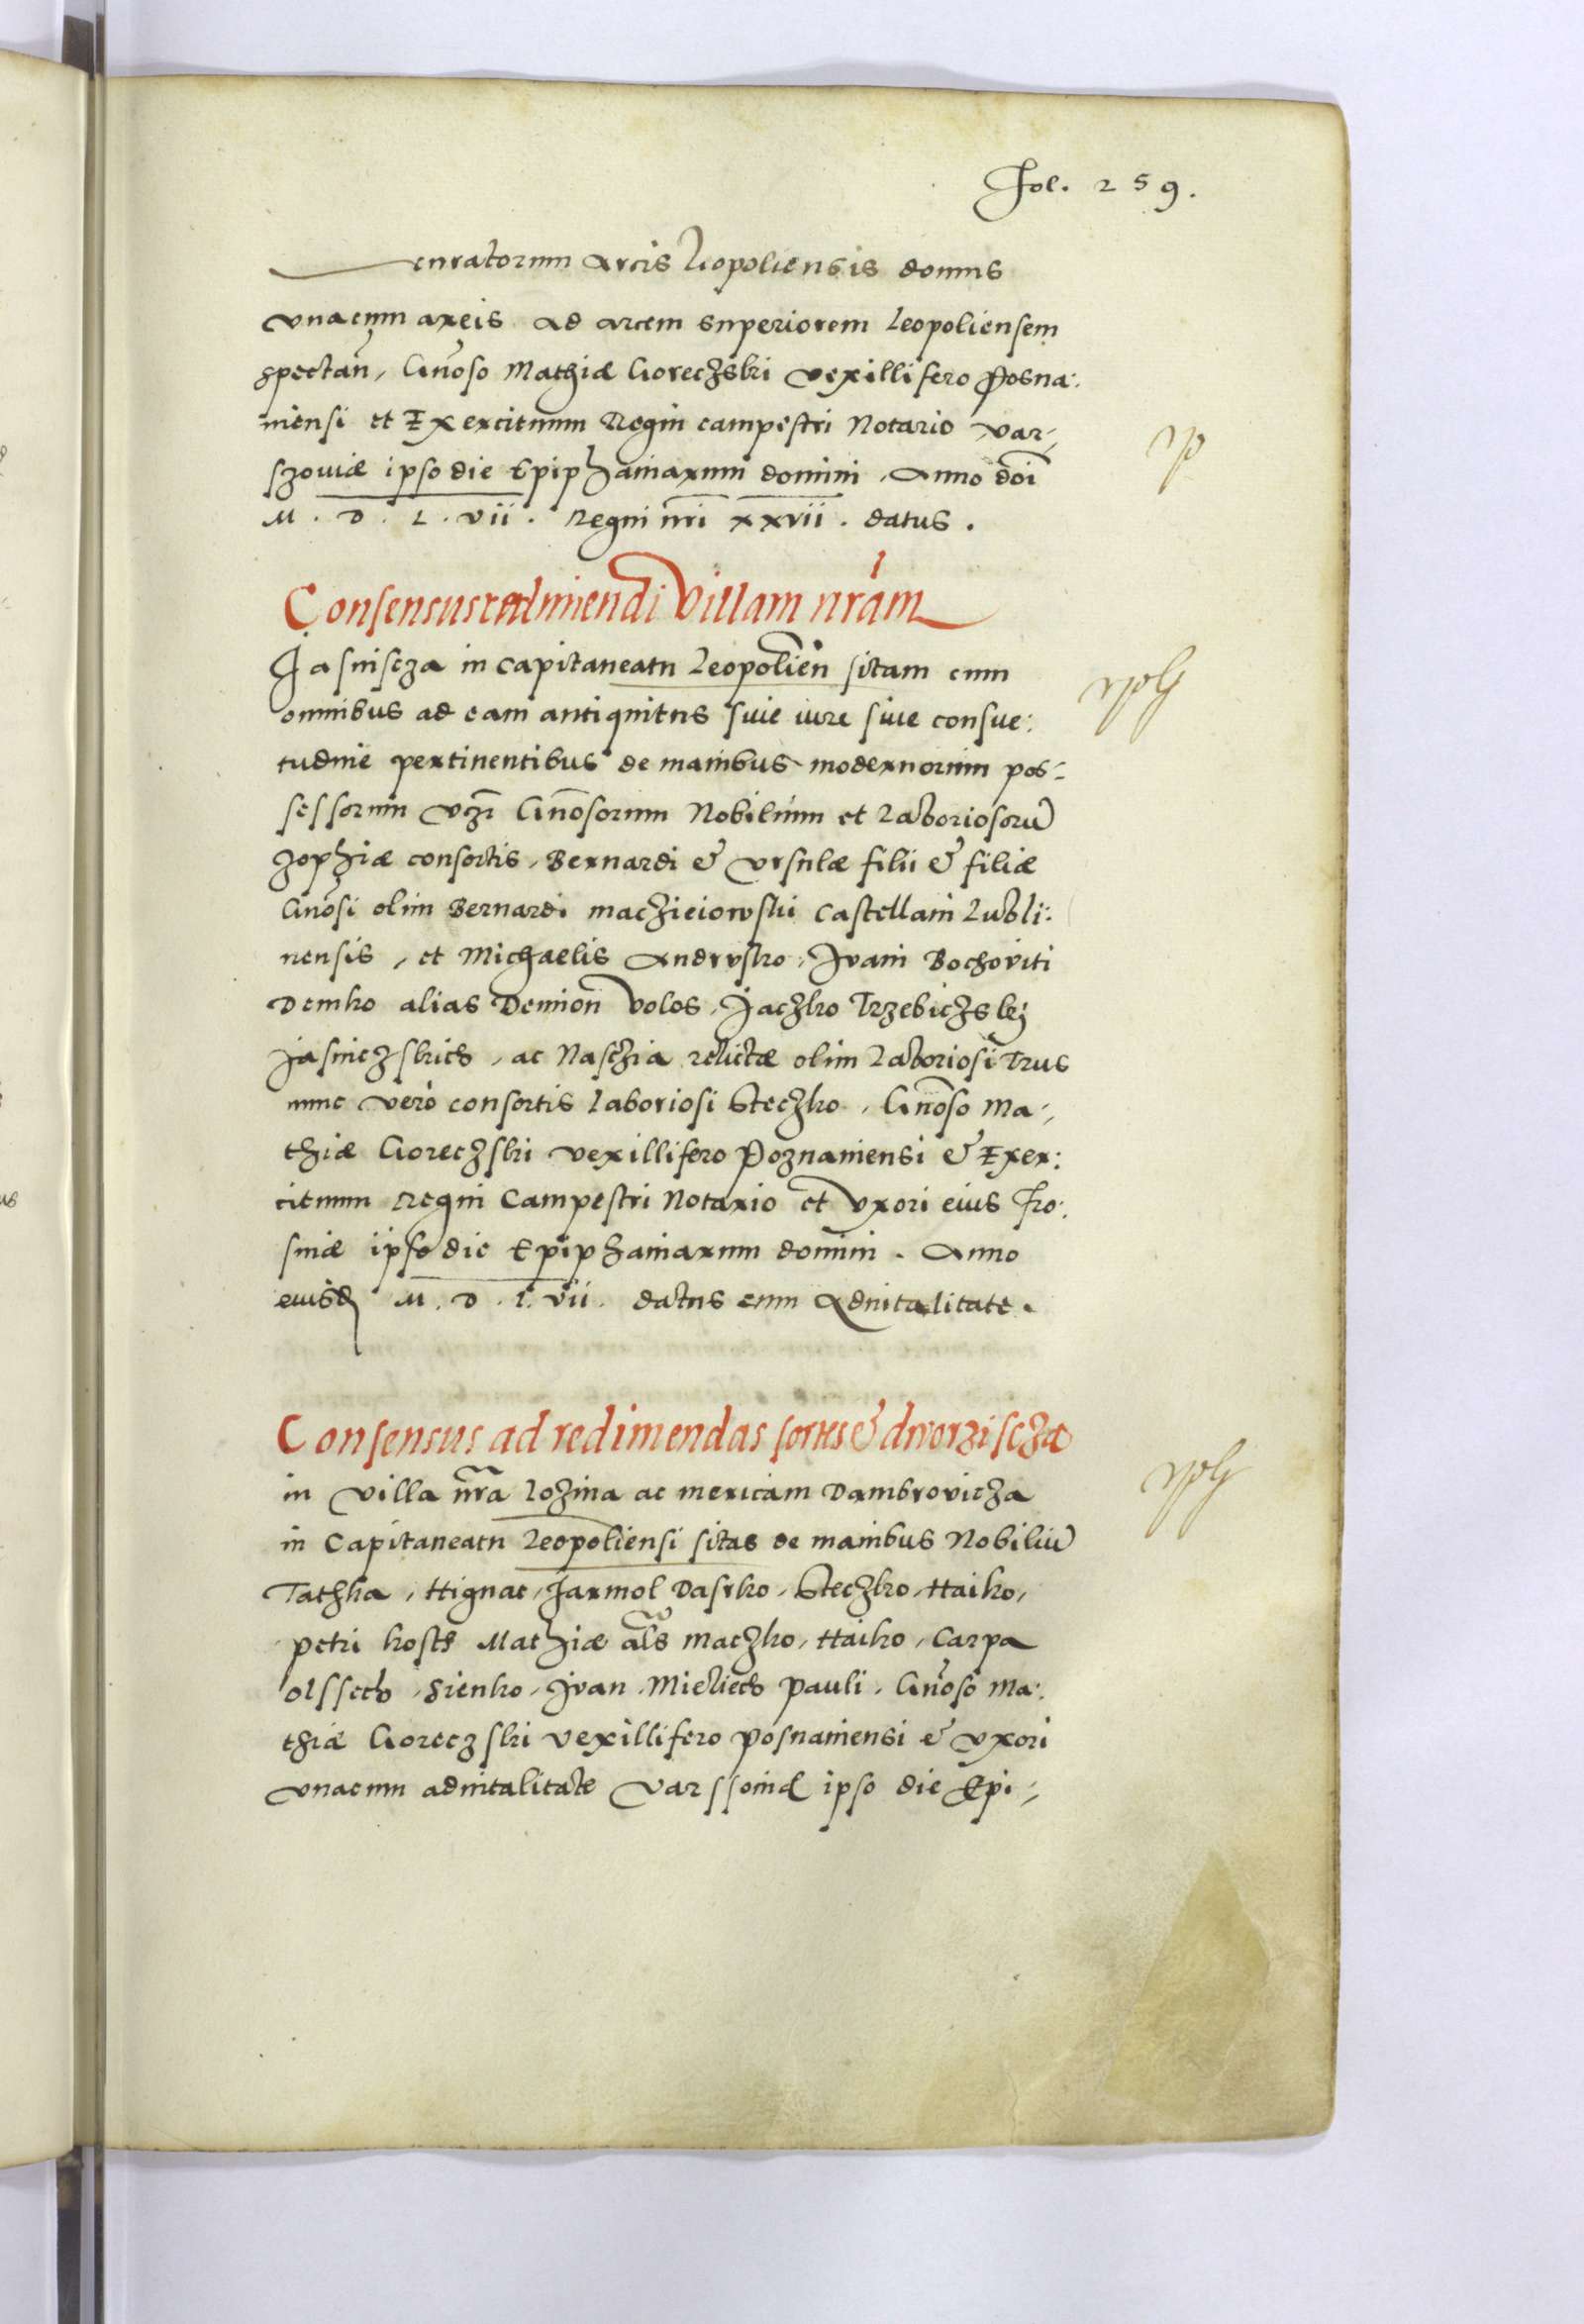 Fol. 259.
curatorum Arcis Leopoliensis domus
Vnacum areis ad arcem superiorem Leopoliensem
spectan̄, Gn̄oso Mathiæ Goreczski vexillifero Posna:
niensi et Exercituum Regni campestri Notario Var-
szoviæ ipso die Epiphaniarum domini, Anno doī
M. D. L. vii. Regni nr̄i xxvii. datus.
Consensus redimendi Villam nrām
Jasniscza in Capitaneatu Leopolien̄ sitam cum
omnibus ad eam antiquitus sive iure sive consue:
tudine pertinentibus de manibus modernorum pos-
sessorum vz̄ Gn̄osorum Nobilium et Laboriosorū
Zophiæ consortis, Bernardi & Vrsulæ filii & filiæ
Gn̄osi olim Bernardi maczieiowski Castellani Lubli:
nensis, et Michaelis Andrysko, Ivani Bochoviti
Demko alias Demion Volos, Jaczko Trzebiczskij
Jasniczskich, ac Nasczia relictæ olim Laboriosi Trus
nunc verò consortis laboriosi Steczko, Gn̄oso Ma-
thiæ Goreczski vexillifero Poznaniensi & Exer:
cituum Regni Campestri Notario et Vxori eius Fro:
siniæ ipso die Epiphaniarum domini. Anno
eiusd M. D. L. vii. datus cum Aduitalitate.
Consensus ad redimendas sortes & dworziscza
in Villa nr̄a Lozina ac mericam Dambrovicza
in Capitaneatu Leopoliensi sitas de manibus Nobiliū
Tathka, Hignac, Jarmol Dasko, Steczko, Haiko,
petri kosth Mathiæ als̄ maczko, Haiko, Carpa
olssech, Sienko, Jvan, Mielech Pauli, Gn̄oso Ma:
thiæ Goreczski vexillifero posnaniensi & Vxori
Vnacum aduitalitate Varssoviæ ipso die Epi-